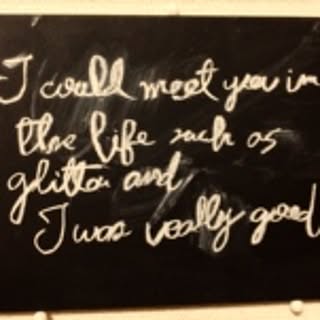 I could meet you in
the life such as
glitter and
I was really good